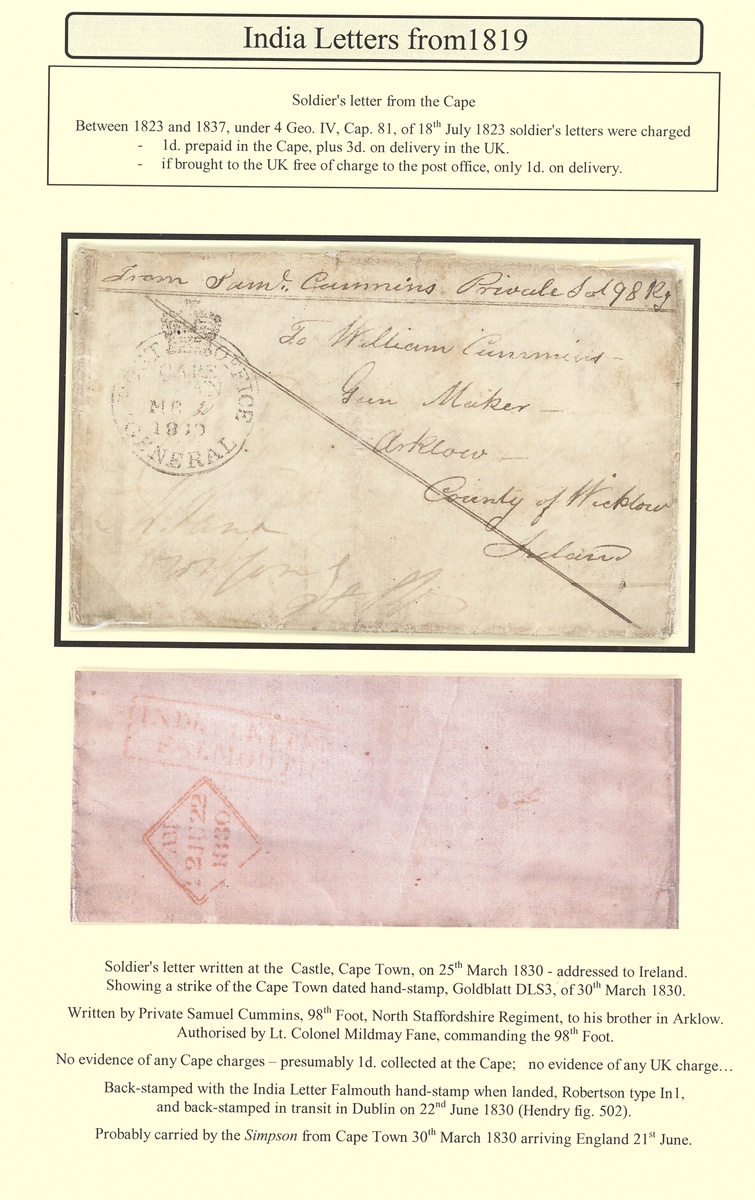 India Letters from1819
Soldier's letter from the Cape
Between 1823 and 1837, under 4 Geo. IV, Cap. 81, of 18th July 1823 soldier's letters were charged
- 1d. prepaid in the Cape, plus 3d. on delivery in the UK.
- if brought to the UK free of charge to the post office, only 1d. on delivery.
From Saml. Cummins Private Sol 98 Rg
POST OFFICE
CAPE
MR 30
1830
GENERAL
To William Cummins
Gun Maker
Arklow
County of Wicklow
Ireland
INDIA LETTER
FALMOUTH
2 JU 22
1830
Soldier's letter written at the Castle, Cape Town, on 25th March 1830 - addressed to Ireland.
Showing a strike of the Cape Town dated hand-stamp, Goldblatt DLS3, of 30th March 1830.
Written by Private Samuel Cummins, 98th Foot, North Staffordshire Regiment, to his brother in Arklow.
Authorised by Lt. Colonel Mildmay Fane, commanding the 98th Foot.
No evidence of any Cape charges – presumably 1d. collected at the Cape; no evidence of any UK charge…
Back-stamped with the India Letter Falmouth hand-stamp when landed, Robertson type In1,
and back-stamped in transit in Dublin on 22nd June 1830 (Hendry fig. 502).
Probably carried by the Simpson from Cape Town 30th March 1830 arriving England 21st June.